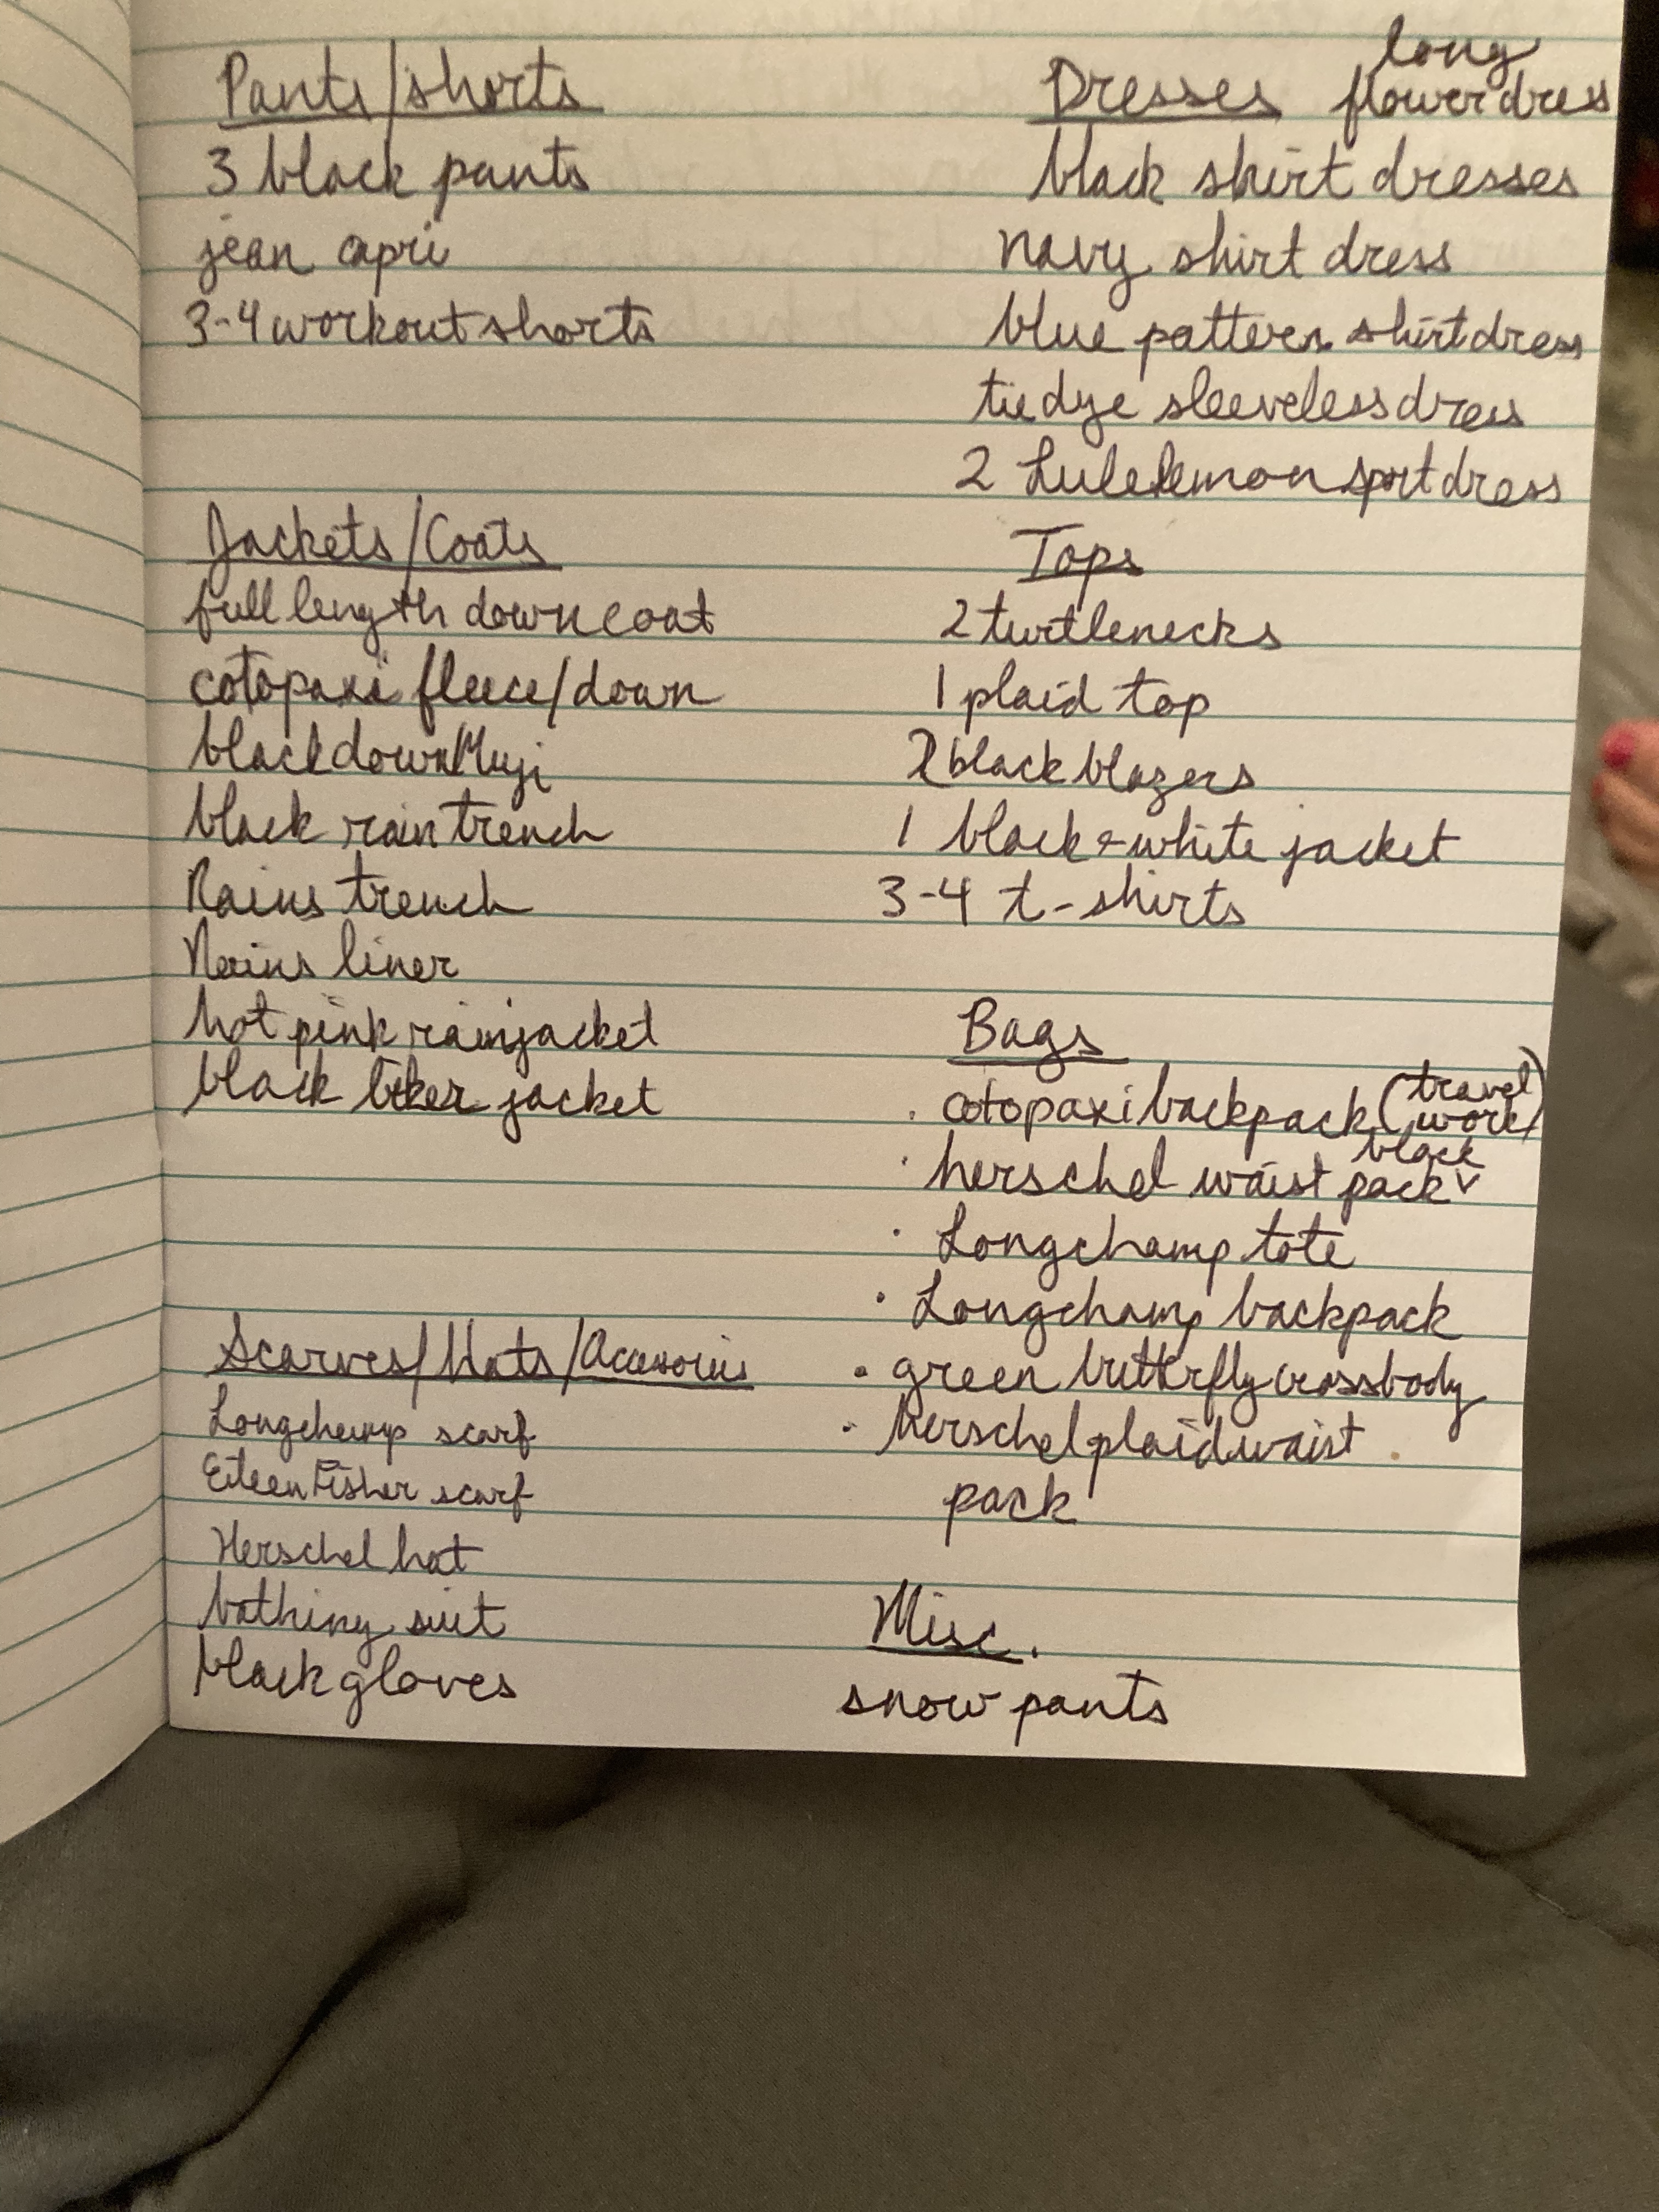 Pants/shorts
3 black pants
jean capri
3-4 workout shorts
Jackets/Coats
full length down coat
cotopaxi fleece/down
black down Muji
black rain trench
Rains trench
Rains liner
hot pink rain jacket
black biker jacket
Scarves/Hats/Accessories
Longchamp scarf
Eileen Fisher scarf
Herschel hat
bathing suit
black gloves
long
Dresses flower dress
black shirt dresses
navy shirt dress
blue pattern shirt dress
tie dye sleeveless dress
2 Lululemon sport dress
Tops
2 turtlenecks
1 plaid top
2 black blazers
1 black + white jacket
3-4 t-shirts
Bags
· cotopaxi backpack (travel
work)
black
· herschel waist pack v
· Longchamp tote
· Longchamp backpack
· green butterfly crossbody
· herschel plaid waist
pack
Misc.
snow pants